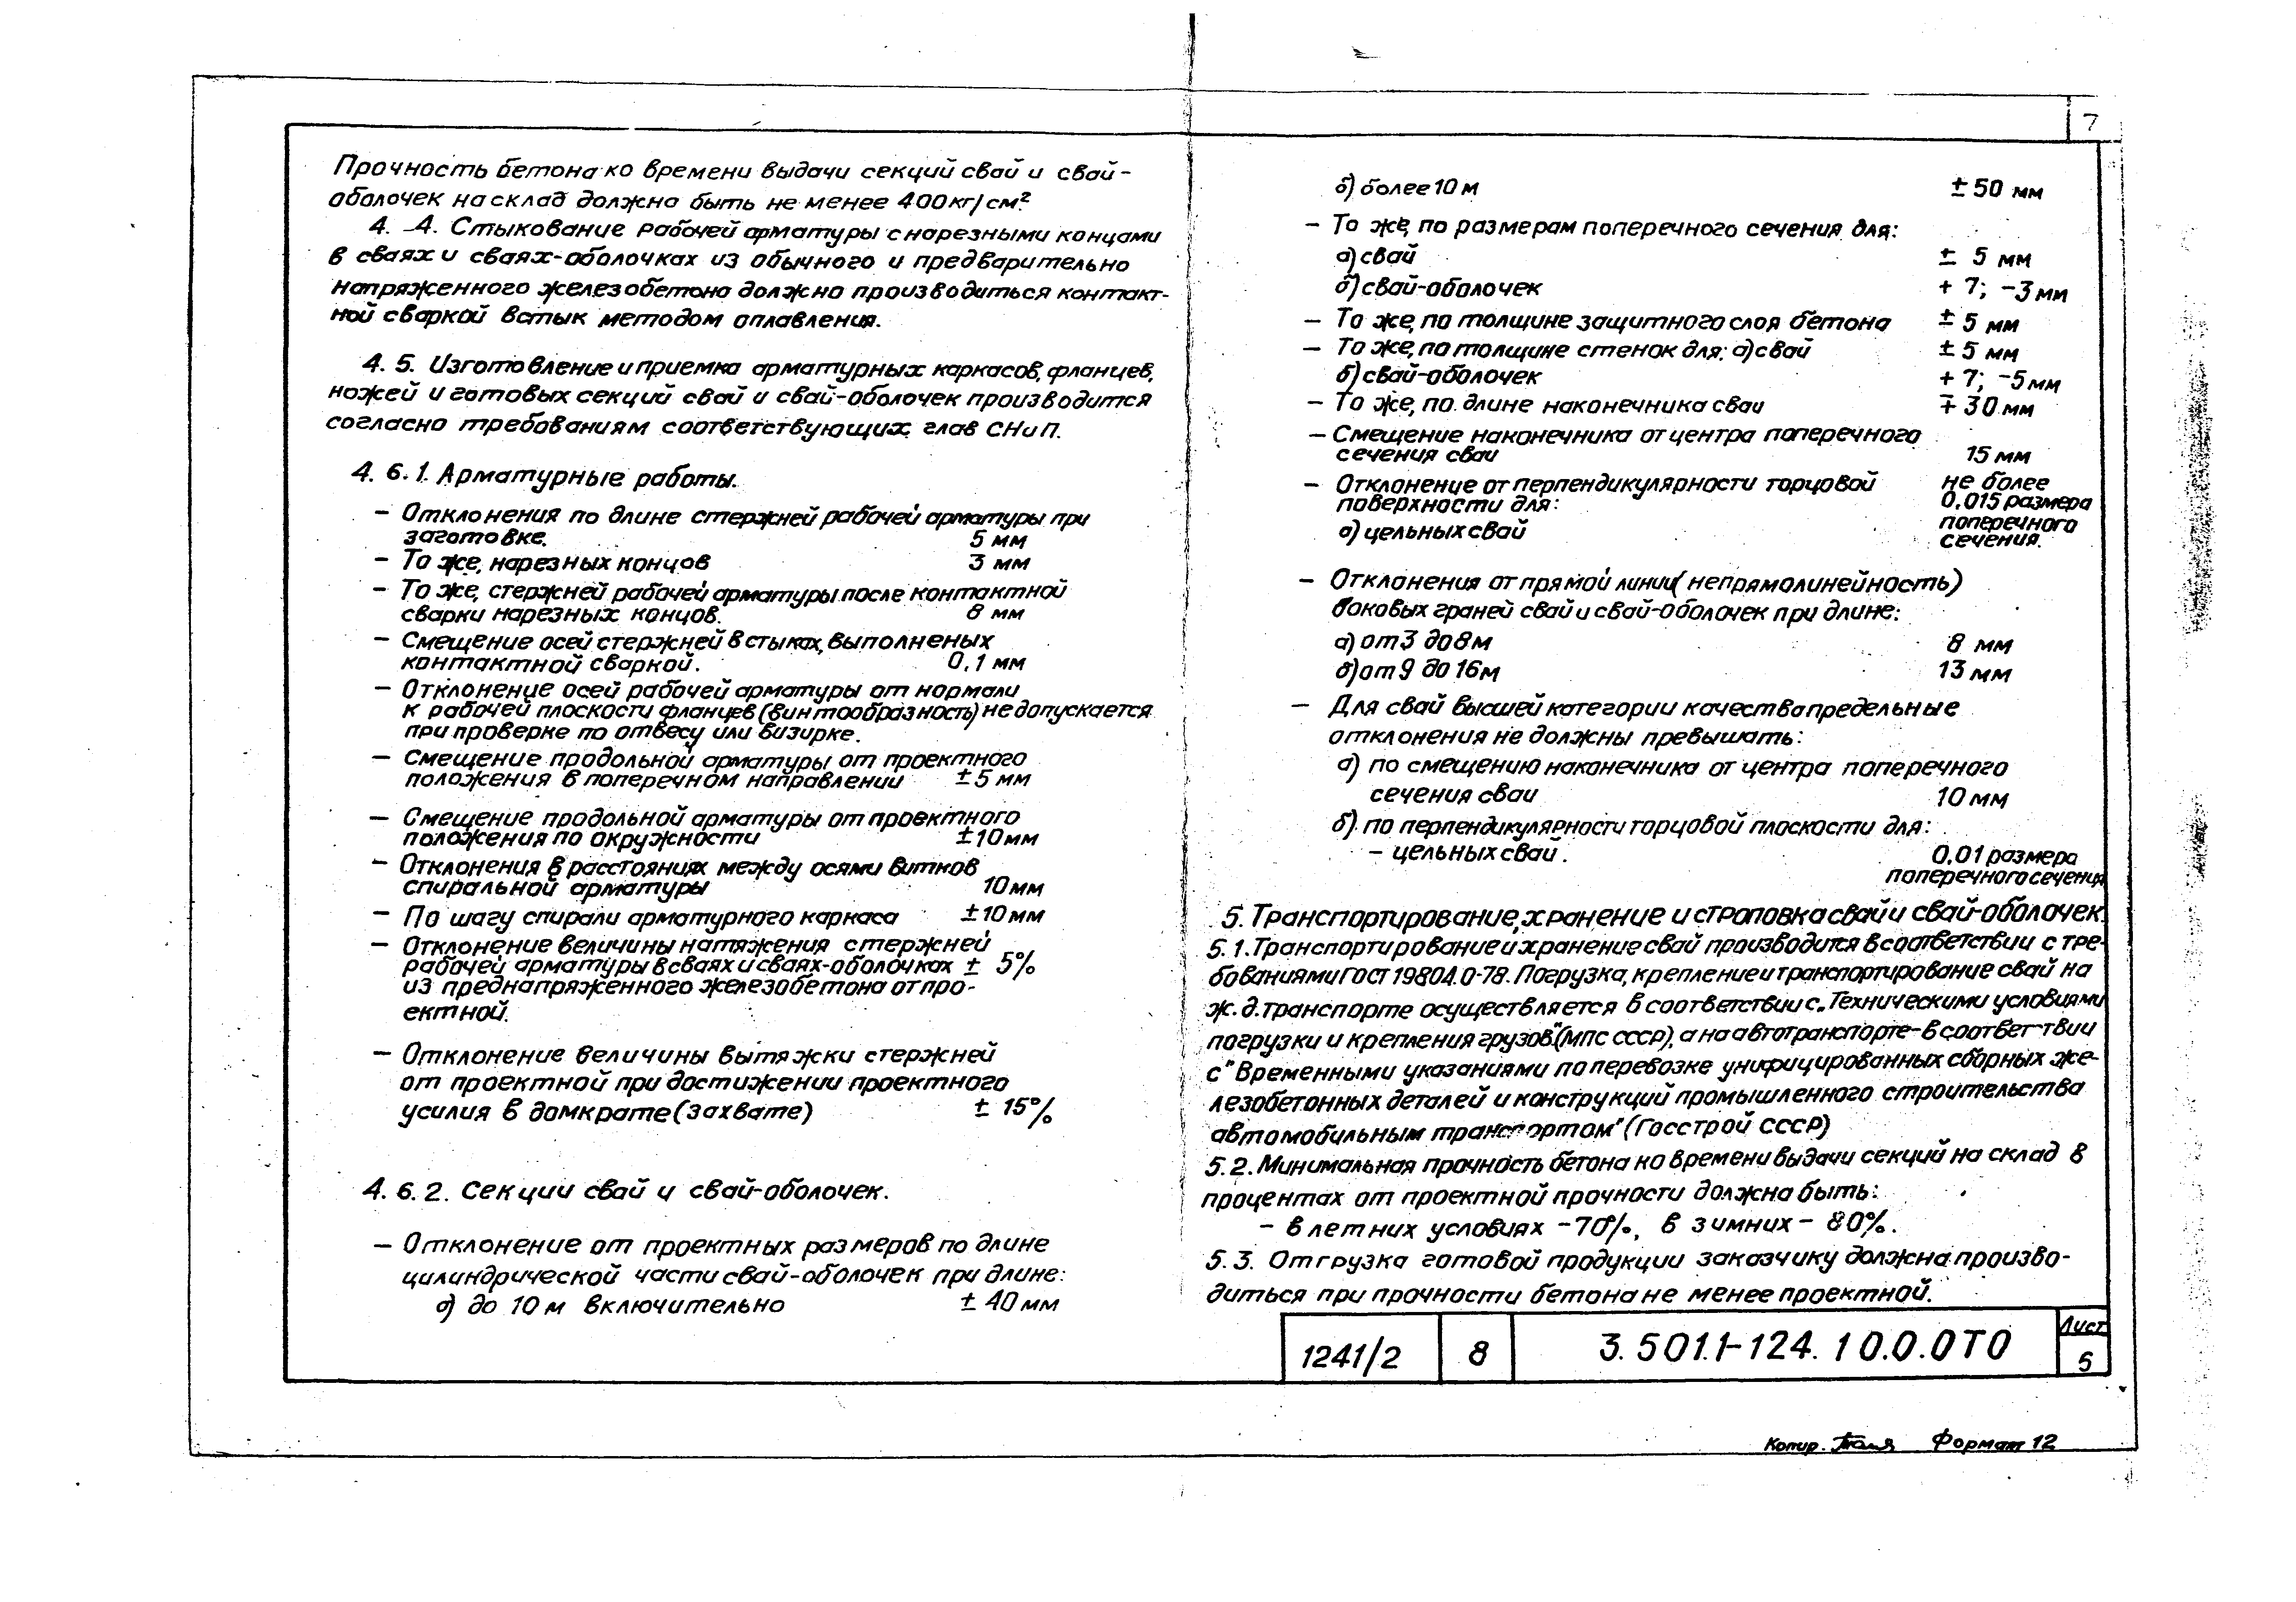 7
Прочность бетона ко времени выдачи секций свай и свай-
оболочек на склад должна быть не менее 400 кг/см².
4. 4. Стыкование рабочей арматуры с нарезными концами
в сваях и сваях-оболочках из обычного и предварительно
напряженного железобетона должно производиться контакт-
ной сваркой встык методом оплавления.
4. 5. Изготовление и приемка арматурных каркасов, фланцев,
ножей и готовых секций свай и свай-оболочек производится
согласно требованиям соответствующих глав СНиП.
4. 6. 1. Арматурные работы.
– Отклонения по длине стержней рабочей арматуры при
заготовке. 5 мм
– То же, нарезных концов 3 мм
– То же, стержней рабочей арматуры после контактной
сварки нарезных концов. 8 мм
– Смещение осей стержней в стыках, выполненых
контактной сваркой. 0,1 мм
– Отклонение осей рабочей арматуры от нормали
к рабочей плоскости фланцев (винтообразность) не допускается
при проверке по отвесу или визирке.
– Смещение продольной арматуры от проектного
положения в поперечном направлении ± 5 мм
– Смещение продольной арматуры от проектного
положения по окружности ± 10 мм
– Отклонения в расстояниях между осями витков
спиральной арматуры 10 мм
– По шагу спирали арматурного каркаса ± 10 мм
– Отклонение величины натяжения стержней
рабочей арматуры в сваях и сваях-оболочках ± 5%
из преднапряженного железобетона от про-
ектной.
– Отклонение величины вытяжки стержней
от проектной при достижении проектного
усилия в домкрате (захвате) ± 15%
4. 6. 2. Секции свай и свай-оболочек.
– Отклонение от проектных размеров по длине
цилиндрической части свай-оболочек при длине:
а) до 10 м включительно ± 40 мм
б) более 10 м ± 50 мм
– То же, по размерам поперечного сечения для:
а) свай ± 5 мм
б) свай-оболочек + 7; -3 мм
– То же, по толщине защитного слоя бетона ± 5 мм
– То же, по толщине стенок для: а) свай ± 5 мм
б) свай-оболочек + 7; -5 мм
– То же, по длине наконечника сваи ∓ 30 мм
– Смещение наконечника от центра поперечного
сечения сваи 15 мм
– Отклонение от перпендикулярности торцовой не более
поверхности для: 0,015 размера
а) цельных свай поперечного
сечения.
– Отклонения от прямой линии (непрямолинейность)
боковых граней свай и свай-оболочек при длине:
а) от 3 до 8 м 8 мм
б) от 9 до 16 м 13 мм
– Для свай высшей категории качества предельные
отклонения не должны превышать:
а) по смещению наконечника от центра поперечного
сечения сваи 10 мм
б) по перпендикулярности торцовой плоскости для:
– цельных свай. 0,01 размера
поперечного сечения
5. Транспортирование, хранение и строповка свай и свай-оболочек.
5. 1. Транспортирование и хранение свай производится в соответствии с тре-
бованиями ГОСТ 19804.0-78. Погрузка, крепление и транспортирование свай на
ж. д. транспорте осуществляется в соответствии с „Техническими условиями
погрузки и крепления грузов" (МПС СССР), а на автотранспорте – в соответствии
с "Временными указаниями по перевозке унифицированных сборных же-
лезобетонных деталей и конструкций промышленного строительства
автомобильным транспортом" (Госстрой СССР)
5. 2. Минимальная прочность бетона ко времени выдачи секций на склад в
процентах от проектной прочности должна быть:
– в летних условиях – 70%, в зимних – 80%.
5. 3. Отгрузка готовой продукции заказчику должна произво-
диться при прочности бетона не менее проектной.
1241/2 8 3.501.1-124. 10.0.0Т0 Лист
5
Копир. Формат 12